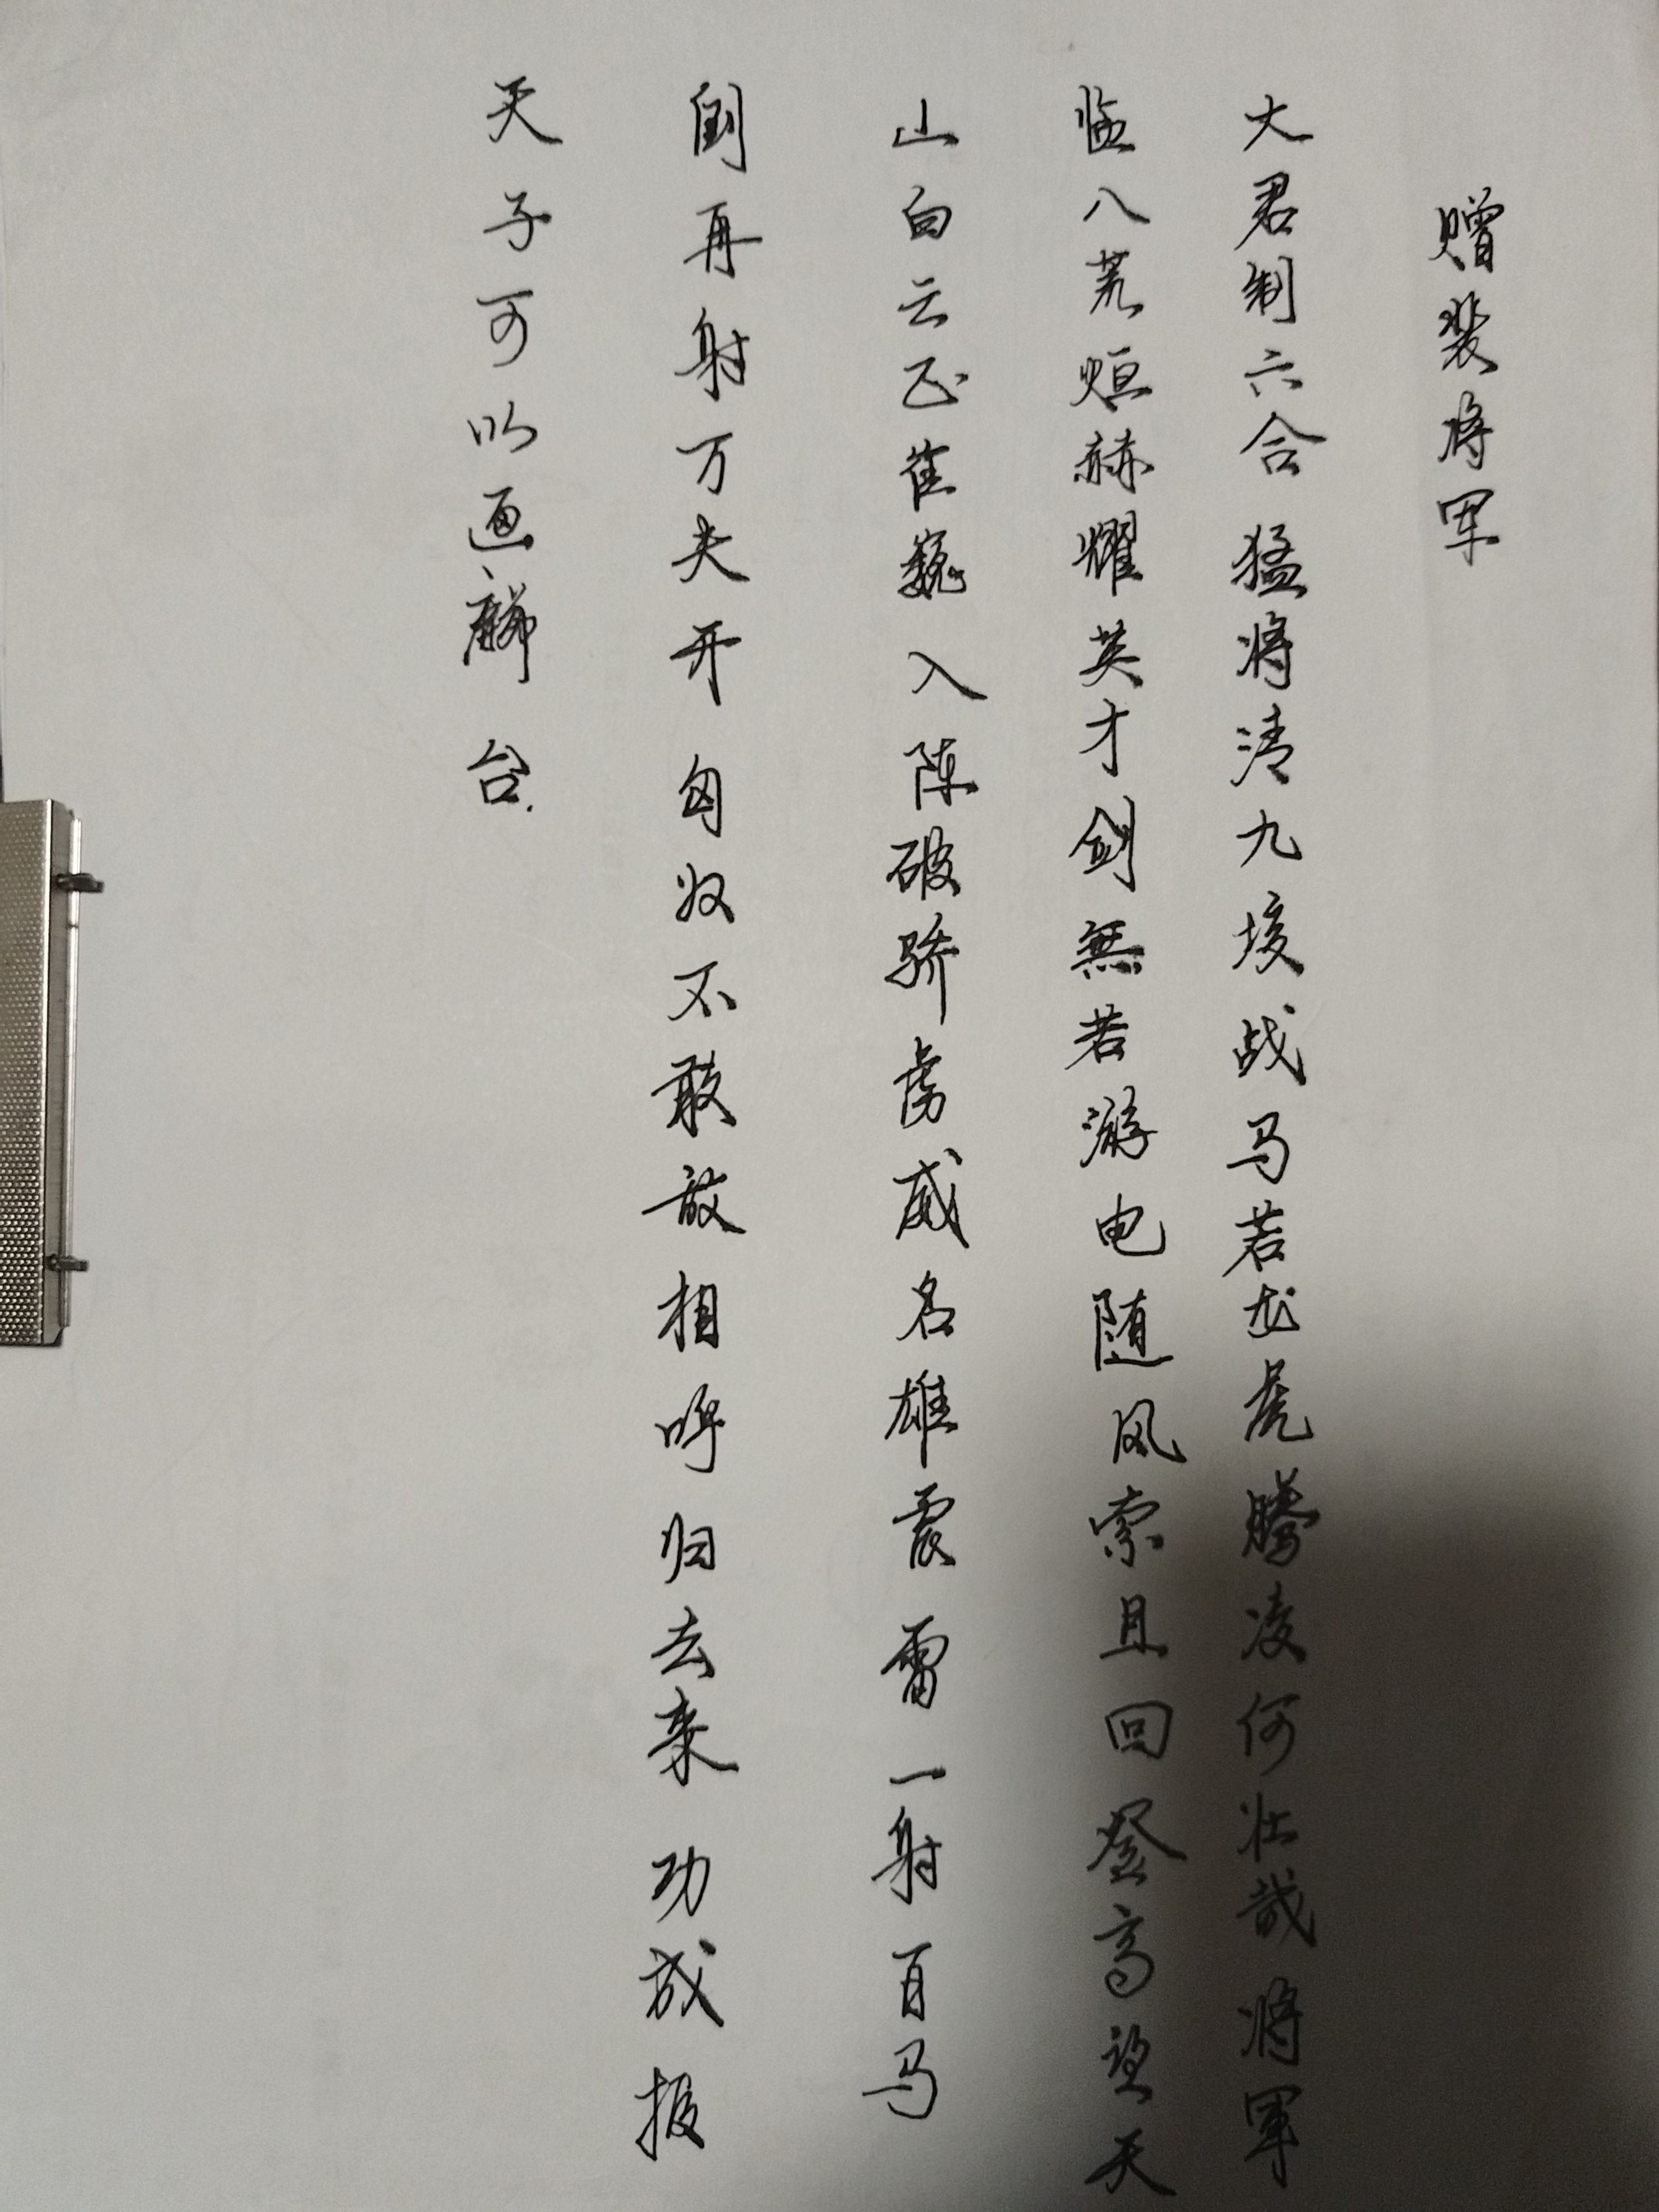 赠裴将军
大君制六合猛将清九垓战马若龙虎腾凌何壮哉将军
临八荒烜赫耀英才剑無若游电随风萦且回登高望天
山白云正崔巍入阵破骄虏威名雄震雷一射百马
倒再射万夫开匈奴不敢敌相呼归去来功成报
天子可以画麟台.